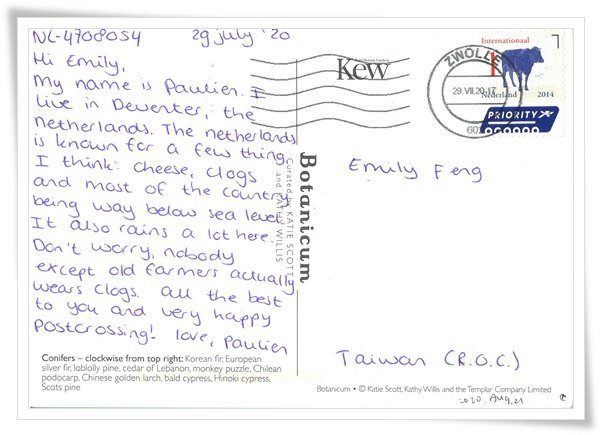 NL-4708054 29 july '20
Hi Emily,
My name is Paulien. I
live in Deventer, the
netherlands. The netherlands
is known for a few things
I think: cheese, clogs
and most of the country
being way below sea level.
It also rains a lot here.
Don't worry, nobody
except old farmers actually
wears clogs. all the best
to you and very happy
postcrossing! love, Paulien
Conifers – clockwise from top right: Korean fir, European
silver fir, loblolly pine, cedar of Lebanon, monkey puzzle, Chilean
podocarp, Chinese golden larch, bald cypress, Hinoki cypress,
Scots pine
Kew
Botanicum
Curated by KATIE SCOTT
and KATHY WILLIS
Internationaal
1
Nederland 2014
PRIORITY
ZWOLLE
29.VII.20.17
Emily Feng
Taiwan (R.O.C.)
Botanicum • © Katie Scott, Kathy Willis and the Templar Company Limited
2020. AUG. 21